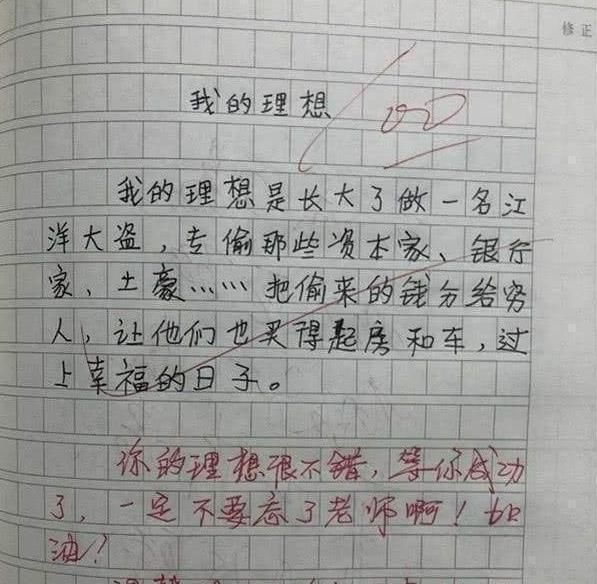 修正
我的理想
100
我的理想是长大了做一名江
洋大盗，专偷那些资本家、银行
家、土豪……把偷来的钱分给穷
人，让他们也买得起房和车，过
上幸福的日子。
你的理想很不错，等你成功
了，一定不要忘了老师啊！加
油！